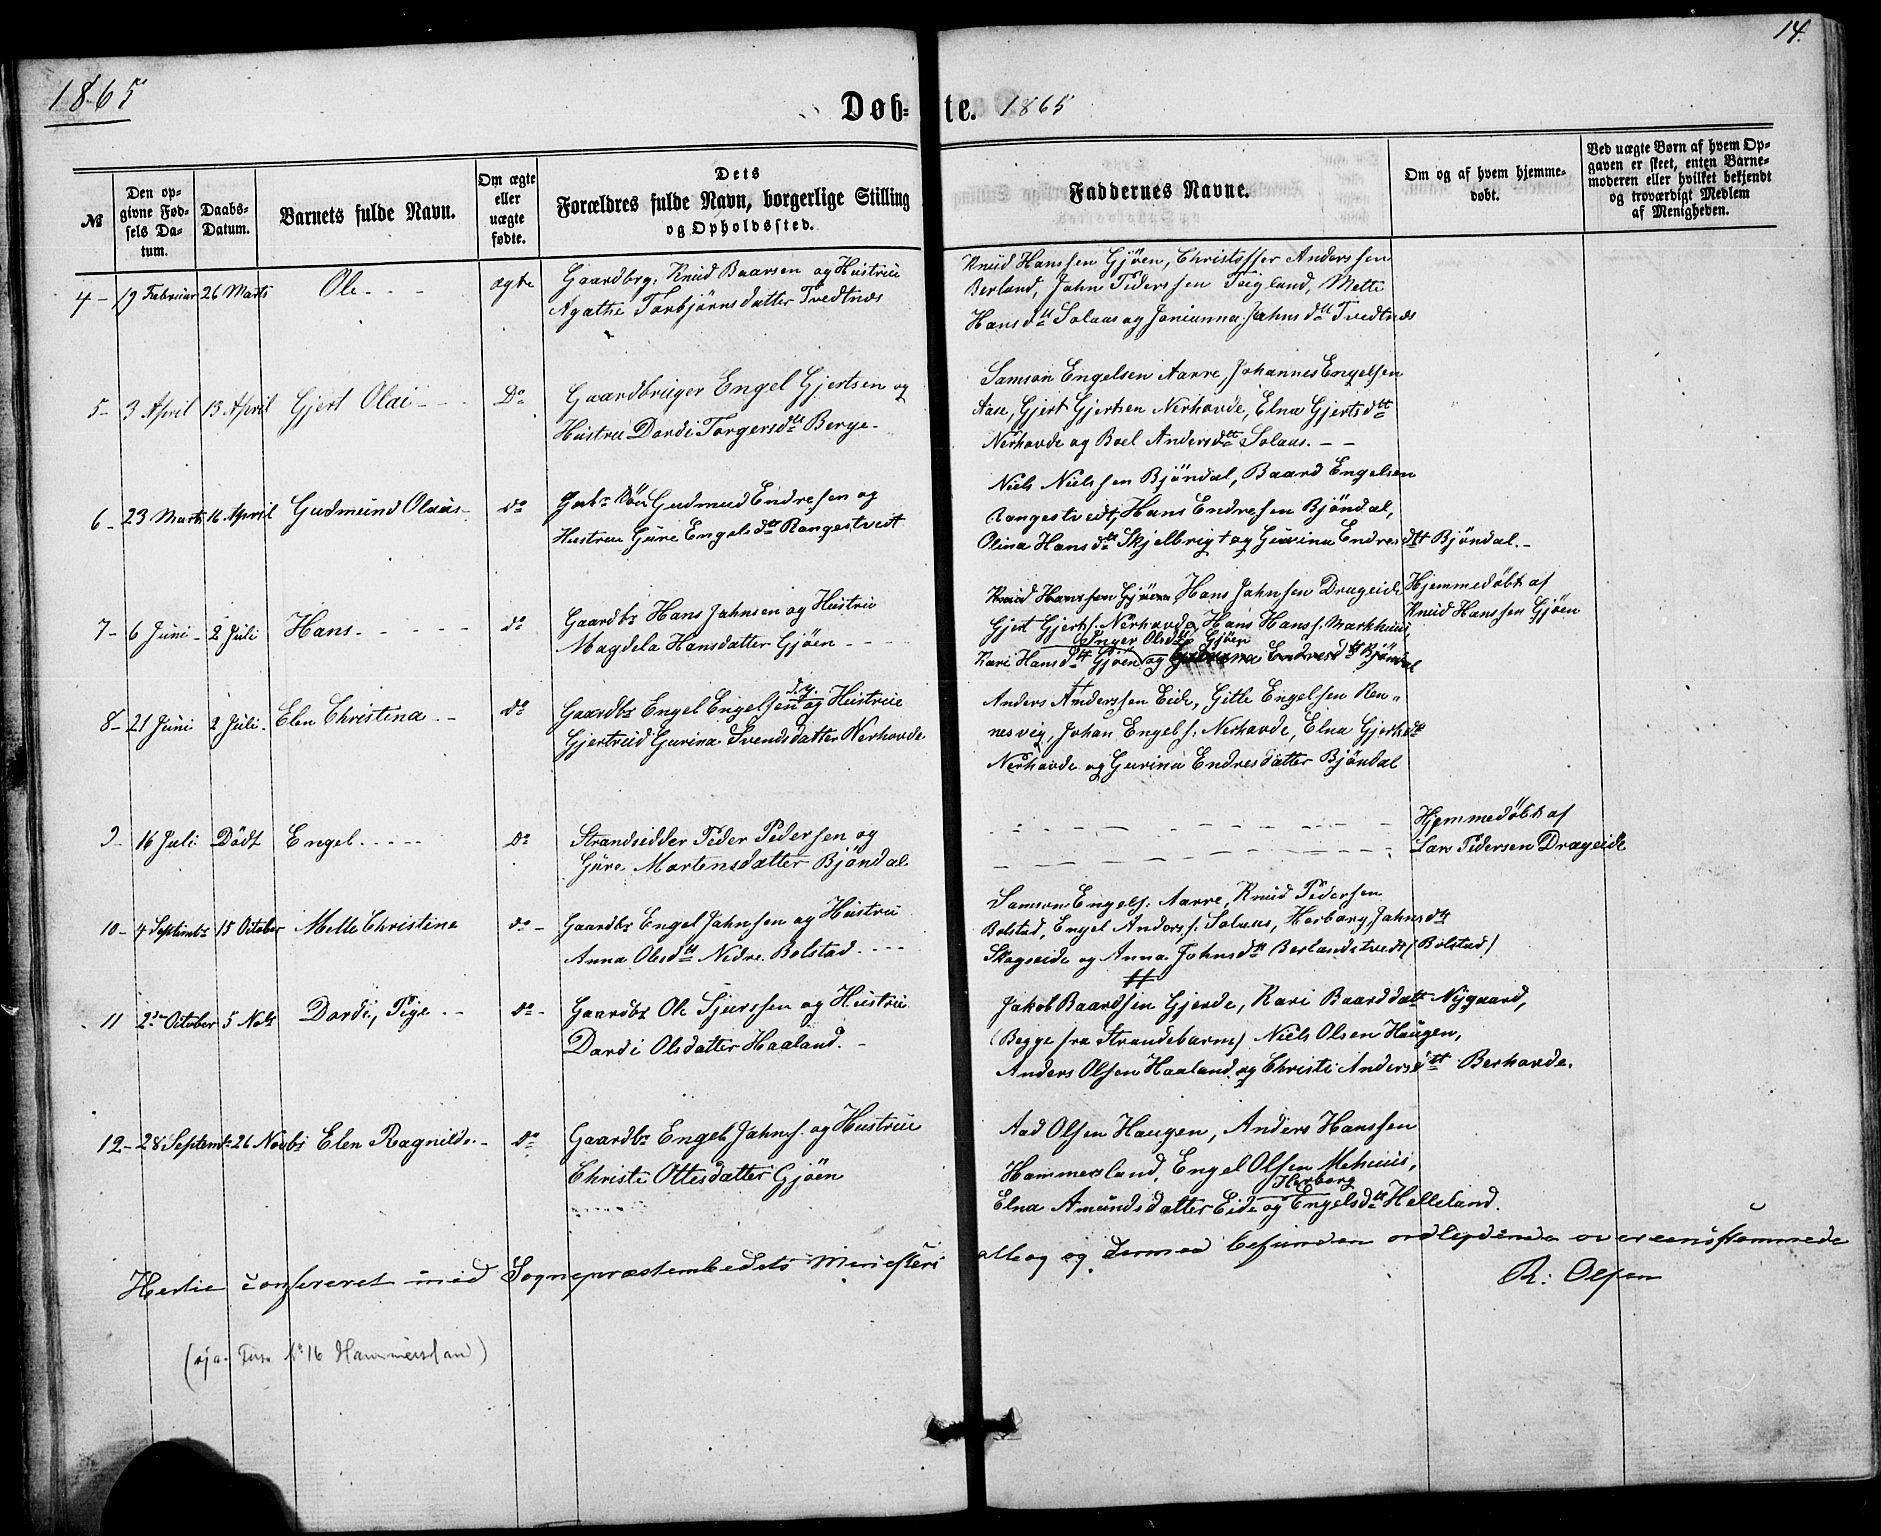 1865
14.
Døb-te. 1865
№
Den opgivne Fødsels Datum.
Daabs-Datum.
Barnets fulde Navn.
Om ægte eller uægte fødte.
Dets Forældres fulde Navn, borgerlige Stilling og Opholdssted.
Faddernes Navne.
Om og af hvem hjemmedøbt.
Ved uægte Børn af hvem Opgaven er skeet, enten Barnemoderen eller hvilket bekjendt og troværdigt Medlem af Menigheden.
4 - 19 Februar 26 Marts Ole - - - ægte Gaardbrg: Knud Baarsen og Hustrue
Agathe Torbjørnsdatter Tvedtnæs
Knud Hanssen Gjöen, Christoffer Anderssen
Berland, John Pederssen Teigland, Mette
Hansdtt Solaas og Janianna Jahnsdtt Tvedtnæs
5 - 3 April 13 April Gjert Olai - - - Do Gaardbruger Engel Gjertsen og
Hustrue Dordi Torgersdtt Berge -
Samson Engelsen Aarre, Johannes Engelsen
Aase, Gjert Gjertsen Nerhovde, Elna Gjertsdtt
Nerhovde og Boel Andersdtt Solaas. - -
6 - 23 Marts 16 April Gudmund Olaus - do Gudmund Endresen og
Hustrue Gure Engelsdtr Rangestvedt
Niels Nielssen Bjöndal, Baard Engelsen
Rangestvedt, Hans Endresen Bjöndal,
Olina Hansdtt Skjelbrigt og Gurina Endresdtt Bjöndal. -
7 - 6 Juni - 2 Juli Hans - - - - - do Gaardbr Hans Jahnsen og Hustrue
Magdela Hansdatter Gjöen - - -
Knud Hanssen Gjöen, Hans Jahnsen Drageide
Gjert Gjerts. Nerhovde, Hans Hans s. Markhuus
Inger Olsdtt Gjöen
Kari Hansdtt Gjöen og Gurina Endresdtt Bjöndal
Hjemmedöbt af
Knud Hanssen Gjöen
8 - 21 Juni 2 Juli - Elen Christina - - do Gaardbr Engel Engelsen d.y. og Hustrue
Gjertrud Gurina Svendsdatter Nerhovde
Anders Anderssen Eide, Gitle Engelsen Ren„
nesvig, Johan Engels s. Nerhovde, Elna Gjertsdtt
Nerhovde og Gurina Endresdatter Bjöndal
9 - 16 Juli Dödt Engel - - - - - Do Strandsidder Peder Pedersen og
Gure Martensdatter Bjöndal
Hjemmedöbt af
Lars Pedersen Drageide
10 - 4 Septembr 15 October Mette Christine do - Gaardbr Engel Jahnsen og Hustrue
Anna Olsdtt Nedre Bolstad - - - -
Samson Engels. Aarre, Knud Pedersen
Bolstad, Engel Anders s. Solaas, Herborg Jahnsdtt
Skogseide og Anna Johnsdtt Berlandstvedt (Bolstad)
11 2den October 5 Nobr Dordi, Pige - - do - Gaardbr Ole Sjurssen og Hustrue
Dordi Olsdatter Haaland. -
Jakob Baardsen Gjerde, Kari Baarddatt Nygaard,
(Begge fra Strandebarm) Niels Olsen Haugen,
Anders Olsen Haaland og Christi Andersdtt Berhovde.
12 - 28 Septembr 26 Novbr Elen Ragnilde - do Gaardbr Engel Jahns. og Hustrue
Christi Ottesdatter Gjöen
Aad Olsen Haugen, Anders Hanssen
Hammersland, Engel Olsen Mehuus,
Elna Amundsdatter Eide og Herborg Engelsdtt Helleland.
Hertil confereret med Sognepræstembedets Ministerialbog og dermed befunden ordlydende overeensstemmende
R: Olsen
№ 16 Hammersland)